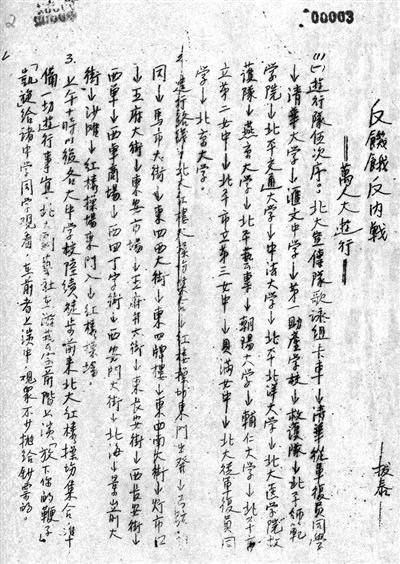 2
00003
反饑餓反內戰
——萬人大遊行——
——振泰
(1)(一)遊行隊伍次序:北大宣傳隊歌詠組卡車→清華從軍復員同學
→清華大學→滙文中學→第一助產學校→救護隊→北平師範
學院→北平交通大學→中法大學→北平北洋大學→北大医学院救
護隊→燕京大學→北平藝專→朝陽大學→輔仁大學→北平市
立第二女中→北平市立第三女中→貝滿女中→北大從軍復員同
學→北京大學。
2. 遊行路綫:北大紅樓大操場集合→紅樓操場東門出發→
同→馬市大街→東四西大街→東四牌樓→東四南大街→灯市口
→王府大街→東安市場→王府井大街→東長安街→西長安街→
西單→西單商場→西四丁字街→西安門大街→北海→景山前大
街→沙灘→紅樓操場東門入→紅樓操場
3. 上午十時以後各大中學校陸續徒步前來北大紅樓操場集合,準
備一切遊行事宜,北大劇藝社在前階上演「放下你的鞭子」
「凱旋」給諸中学同学觀看,在前者上演中,观眾不少抛給鈔票的。